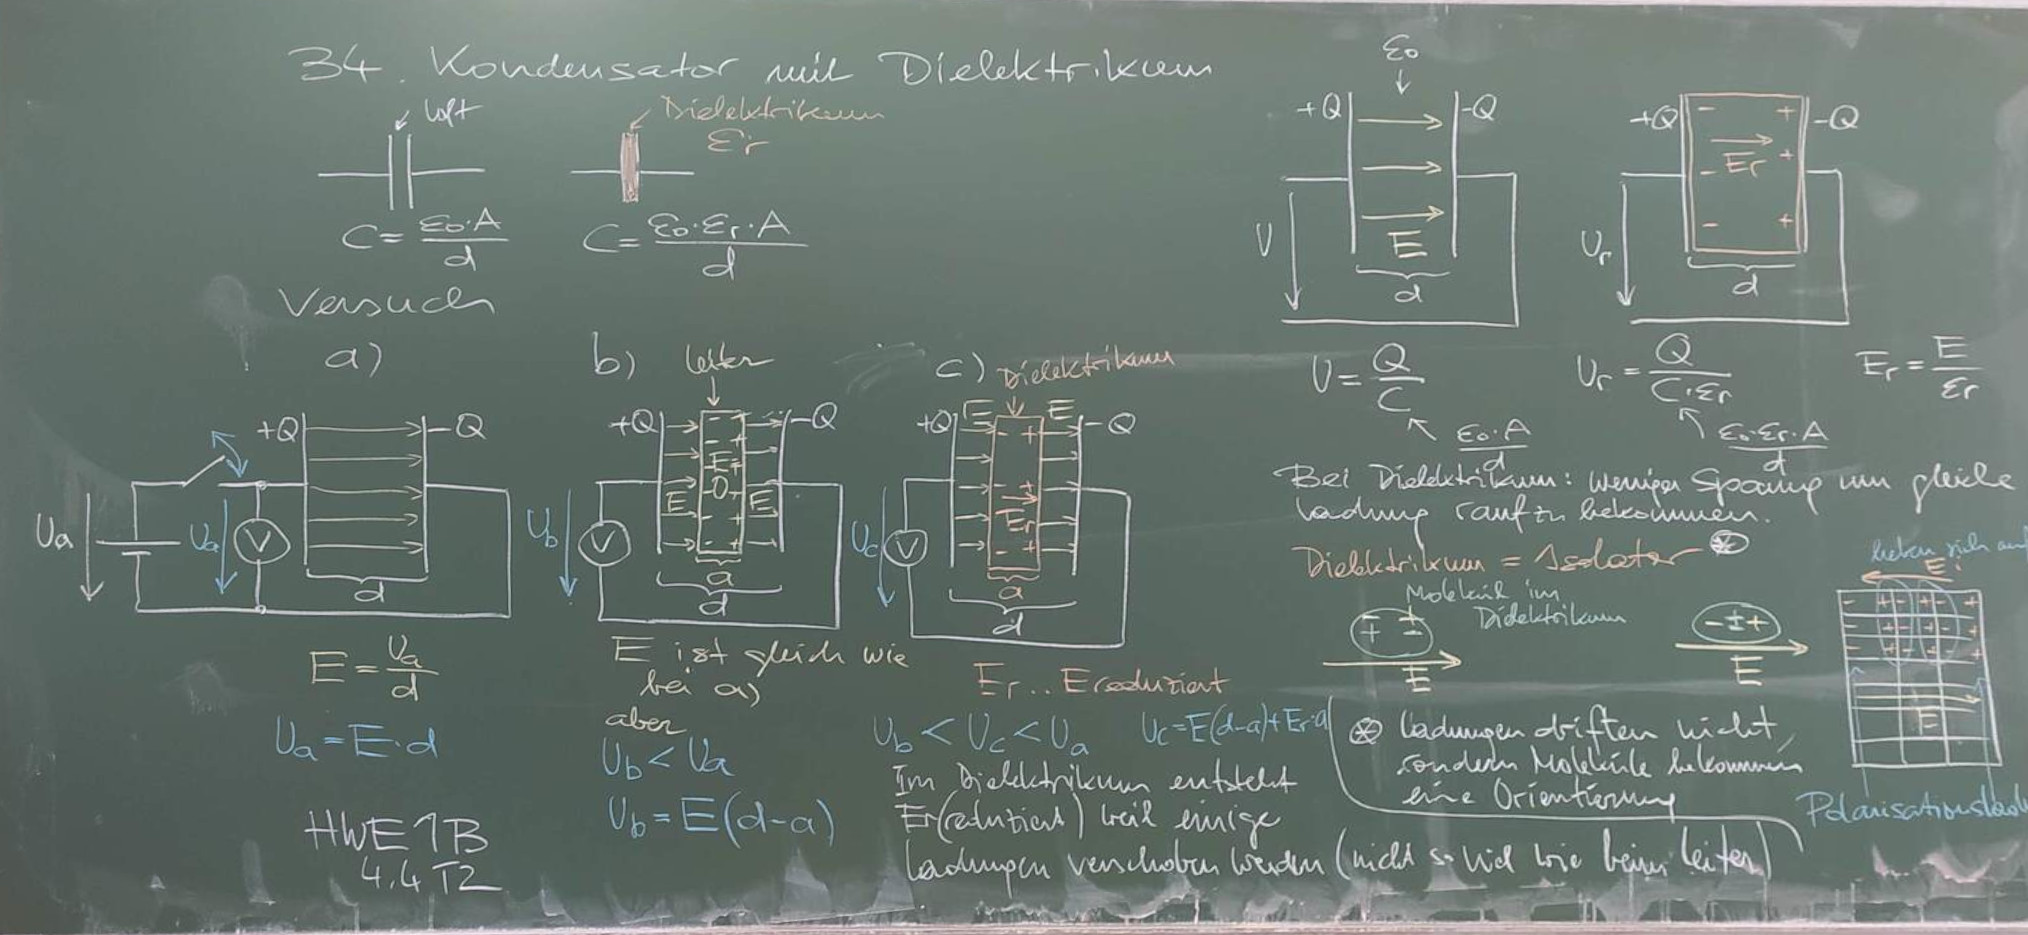 34. Kondensator mit Dielektrikum
Luft
Dielektrikum
εr
C = ε0·A / d
C = ε0·εr·A / d
Versuch
a)
+Q
-Q
Ua
Ua
V
d
E = Ua / d
Ua = E·d
HWE 1B
4.4 T2
b)
Leiter
+Q
-Q
E=
0
E
E
Ub
V
a
d
E ist gleich wie
bei a)
aber
Ub < Ua
Ub = E(d-a)
c)
Dielektrikum
+Q
E
E
-Q
Er
Uc
V
a
d
Er .. E reduziert
Ub < Uc < Ua
Uc = E(d-a)+Er·a
Im Dielektrikum entsteht
Er (reduziert) weil einige
Ladungen verschoben werden (nicht so viel wie beim Leiter)
ε0
+Q
-Q
E
U
d
+Q
-Q
Er
Ur
d
U = Q / C
ε0·A / d
Ur = Q / C·εr
ε0·εr·A / d
Er = E / εr
Bei Dielektrikum: weniger Spannung um gleiche
Ladung rauf zu bekommen.
Dielektrikum = Isolator ⊛
Molekül im
Dielektrikum
E
-±+
E
heben sich auf
E
E
⊛ Ladungen driften nicht,
sondern Moleküle bekommen
eine Orientierung